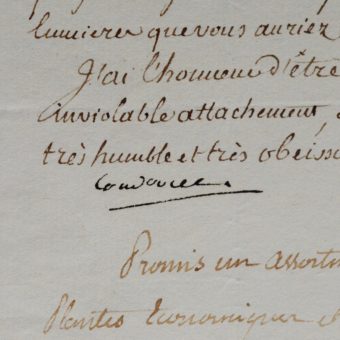 lumieres que vous auriez
J'ai l'honneur d'être
inviolable attachement,
très humble et très obeiss
Condorcet.
Promis un assortim
Plantes Economiques et